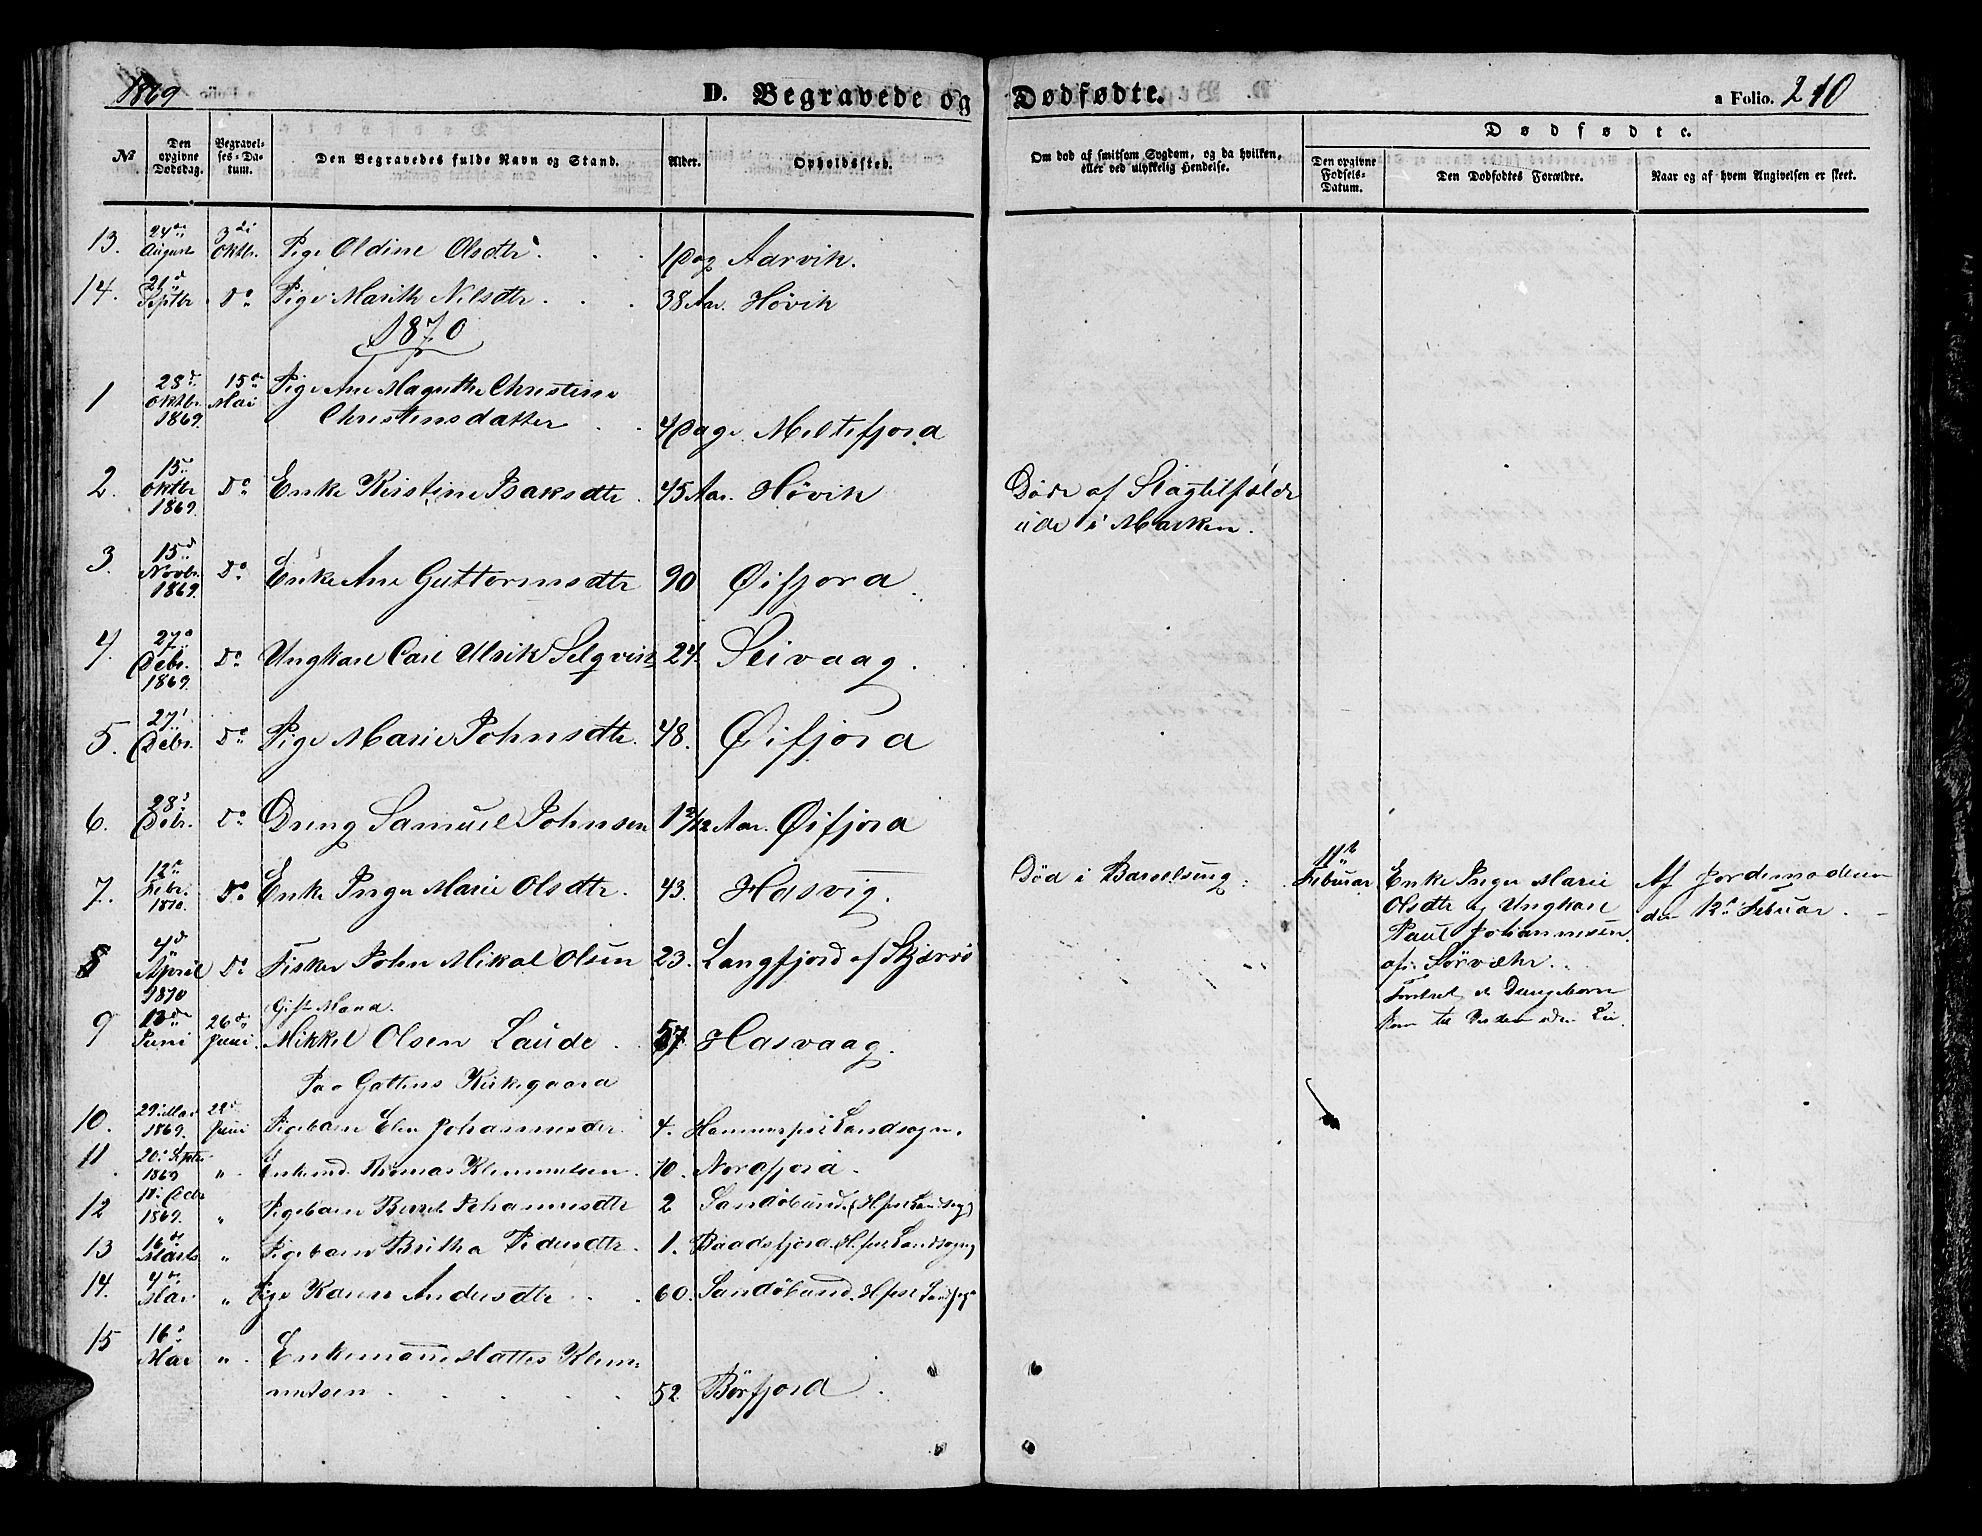 1869 D. Begravede og Dødfødte. a Folio. 210
Dødfødte.
№ Den opgivne Dødsdag. Begravelses-Datum. Den Begravedes fulde Navn og Stand. Alder. Opholdssted. Om død af smitsom Sygdom, og da hvilken, eller ved ulykkelig Hendelse. Den opgivne Fødsels-Datum. Den Dødfødtes Forældre. Naar og af hvem Angivelsen er skeet.
13. 24de August 3di Oktbr. Pige Oldine Olsdtr. 1 Dag Aarvik.
14. 21d Septbr Do Pige Marith Nilsdtr. 38 Aar. Høvik
1870
1 28d Oktbr. 1869. 15d Mai Pige Ane Magrethe Christine
Christensdatter 4 Dage Meltefjord
2. 15 Oktbr 1869. Do Enke Kirstine Isaksdtr. 45 Aar. Høvik Døde af Slagtilfælde
ude i Marken.
3. 15d Novbr. 1869. Do Enke Ane Guttormsdtr 90 Øifjord
4. 27d Debr. 1869. Do Ungkarl Carl Ulrik Selqvist 24. Seivaag.
5. 27d Debr. Do Pige Marie Johnsdtr. 48. Øifjord
6. 28d Debr. Do Dreng Samuel Johnsen 1 2/12 Aar. Øifjord
7. 12d Febr. 1870. Do Enke Inger Marie Olsdtr. 43. Hasvig. Død i Barselseng. 11te Februar Enke Inger Marie Af Jordemoderen
Olsdtr og Ungkarl den 12d Februar.
Paul Johannesen
af Sørvær.
8 4d April 1870 Do Fisker John Mikal Olsen 23. Langfjord af Skjervø
Fostret et Drengebarn
kom til Verden uden Liv.
Gift Mand.
9 13de Juni 26de Juni. Mikkel Olsen Laude. 57 Hasvaag.
Paa Gottens Kirkegaard
10. 29. Mai 1869. 29d Juni Pigebarn Elen Johannesdtr. 4. Hammerfest Landsogn.
11 20. Septbr 1869 " Enkemd. Thomas Klemmetsen. 70. Nordfjord.
12 11. Debr 1869. " Pigebarn Beret Johannesdtr 2 Sandøbund. (Hfest Landsog)
13 16de Marts " Pigebarn Britha Pedersdtr. 1. Baadsfjord. (Hfest Landsogn)
14. 4de Mai " Pige Karen Andersdtr 60. Sandøbund. Hfest Landsogn
15 16d Mai " Enkemand Mattes Klem-
metsen 52 Børfjord.